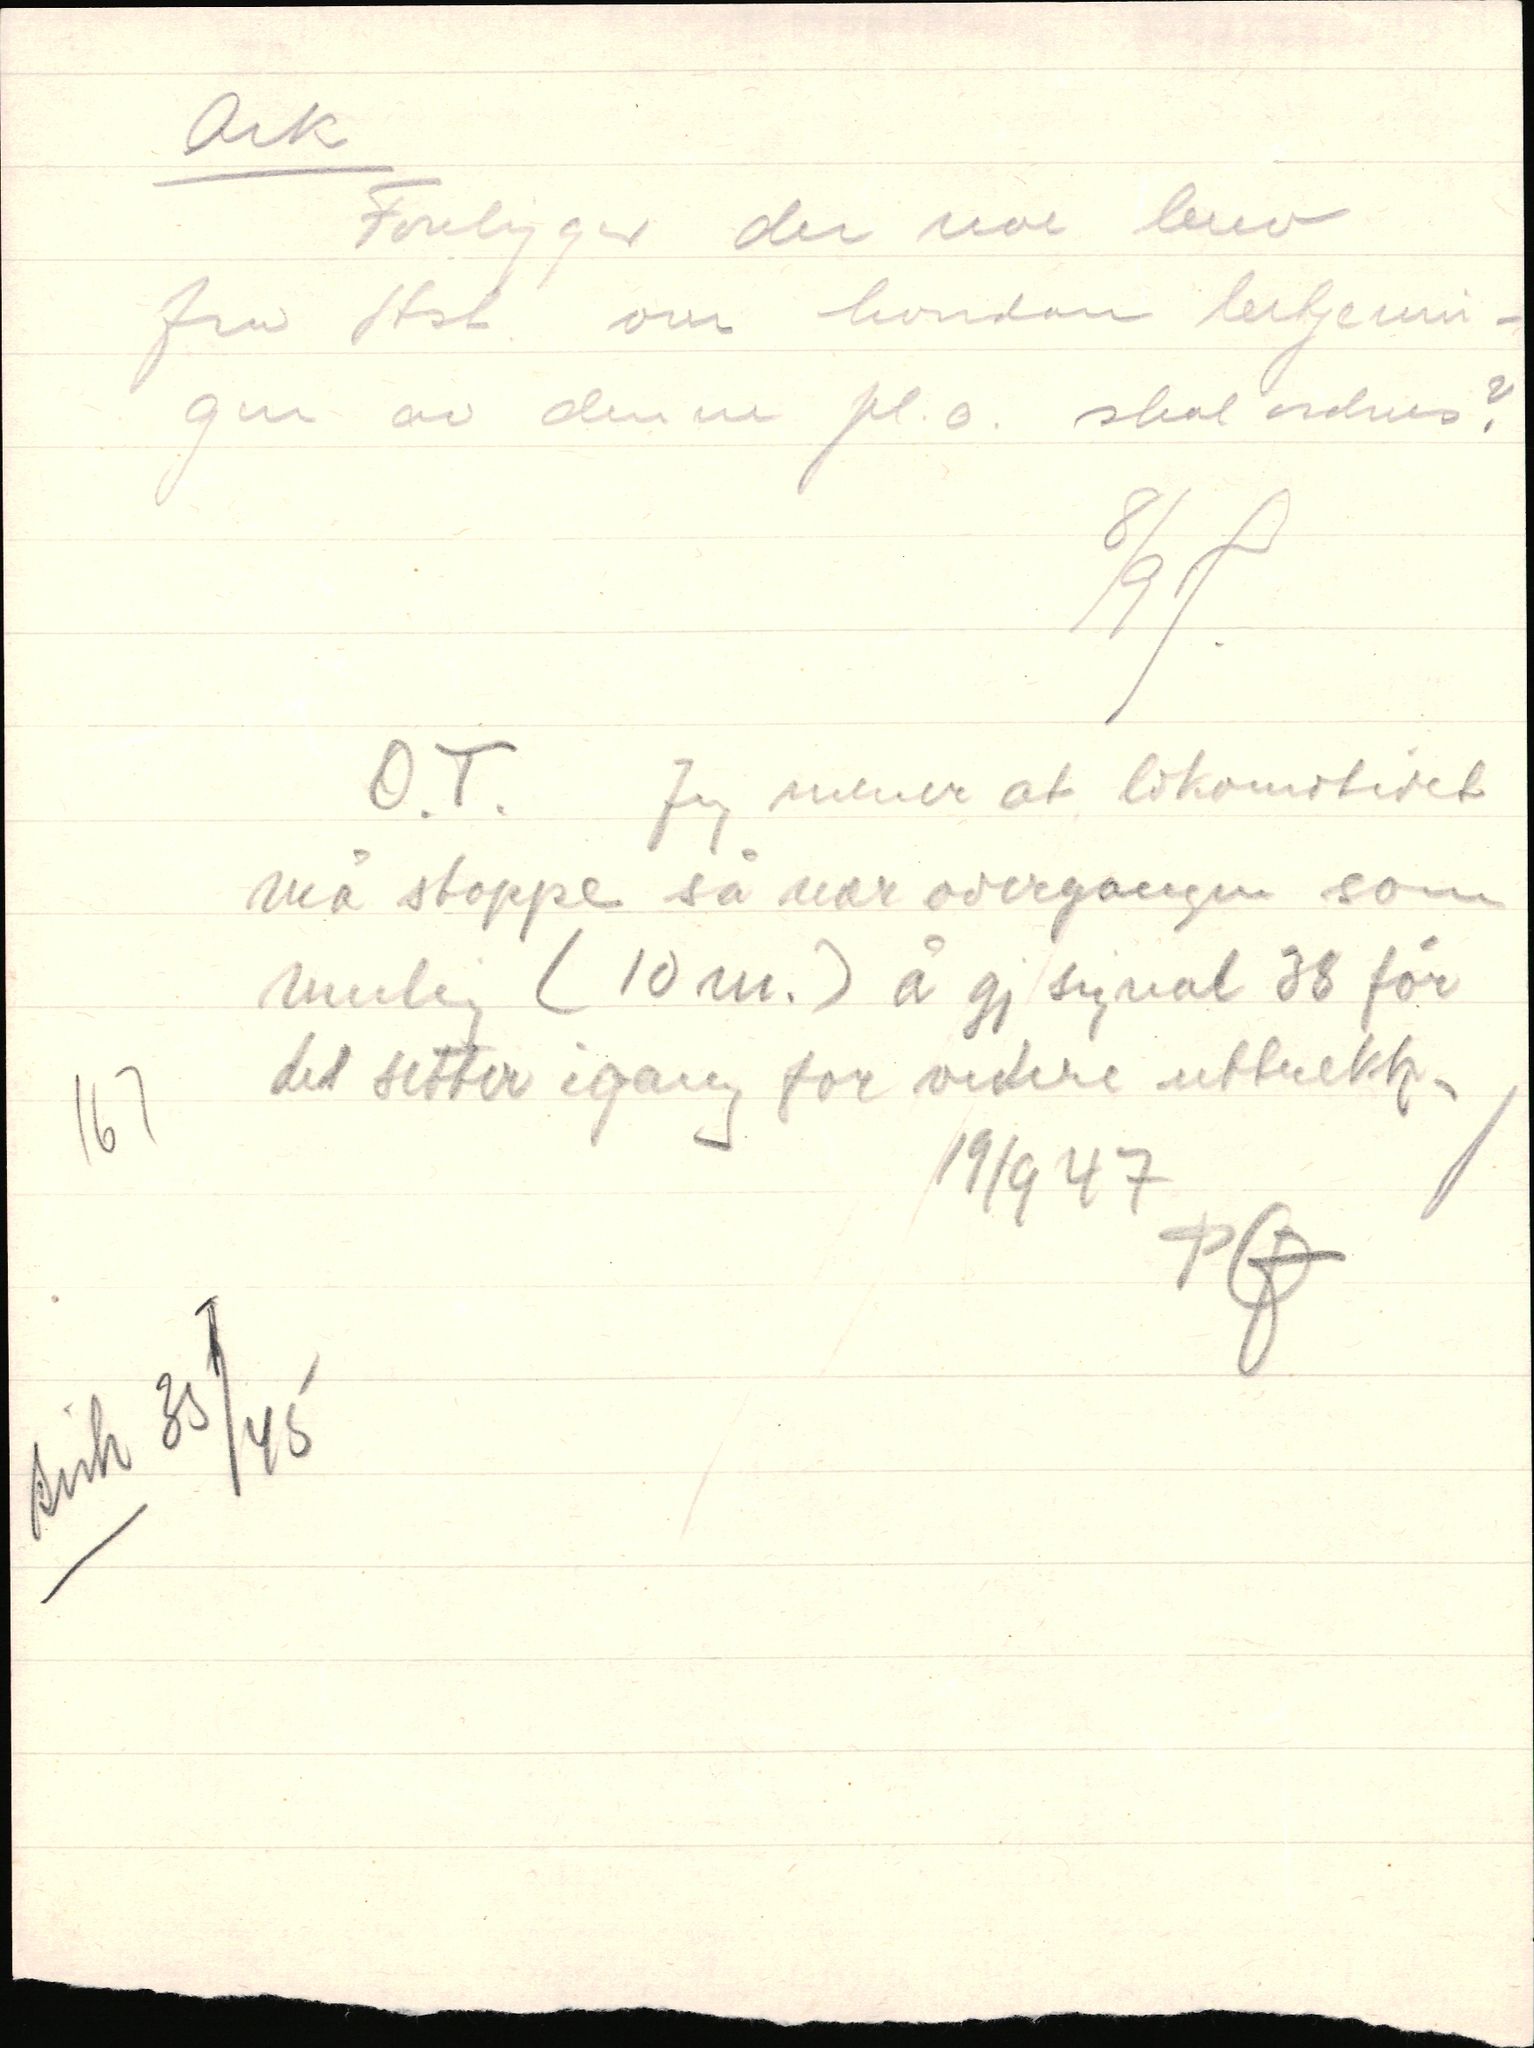 Ark
Foreligger der noe brev
fra Hst om hvordan betjenin-
gen av denne pl.o. skal ordnes?
8/9
O.T. Jeg mener at lokomotivet
må stoppe så nær overgangen som
mulig (10 m.) å gi signal 38 før
det setter igang for videre uttrekk.
167
19/9 47
Sirk 35/45